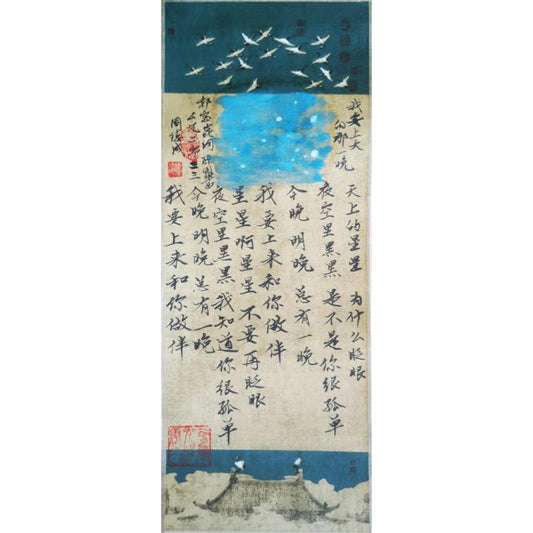 我要上天
的那一晚
天上的星星 为什么眨眼
夜空里黑黑 是不是你很孤单
今晚 明晚 总有一晚
我要上来和你做伴
星星啊星星 不要再眨眼
夜空里黑黑 我知道你很孤单
今晚 明晚 总有一晚
我要上来和你做伴